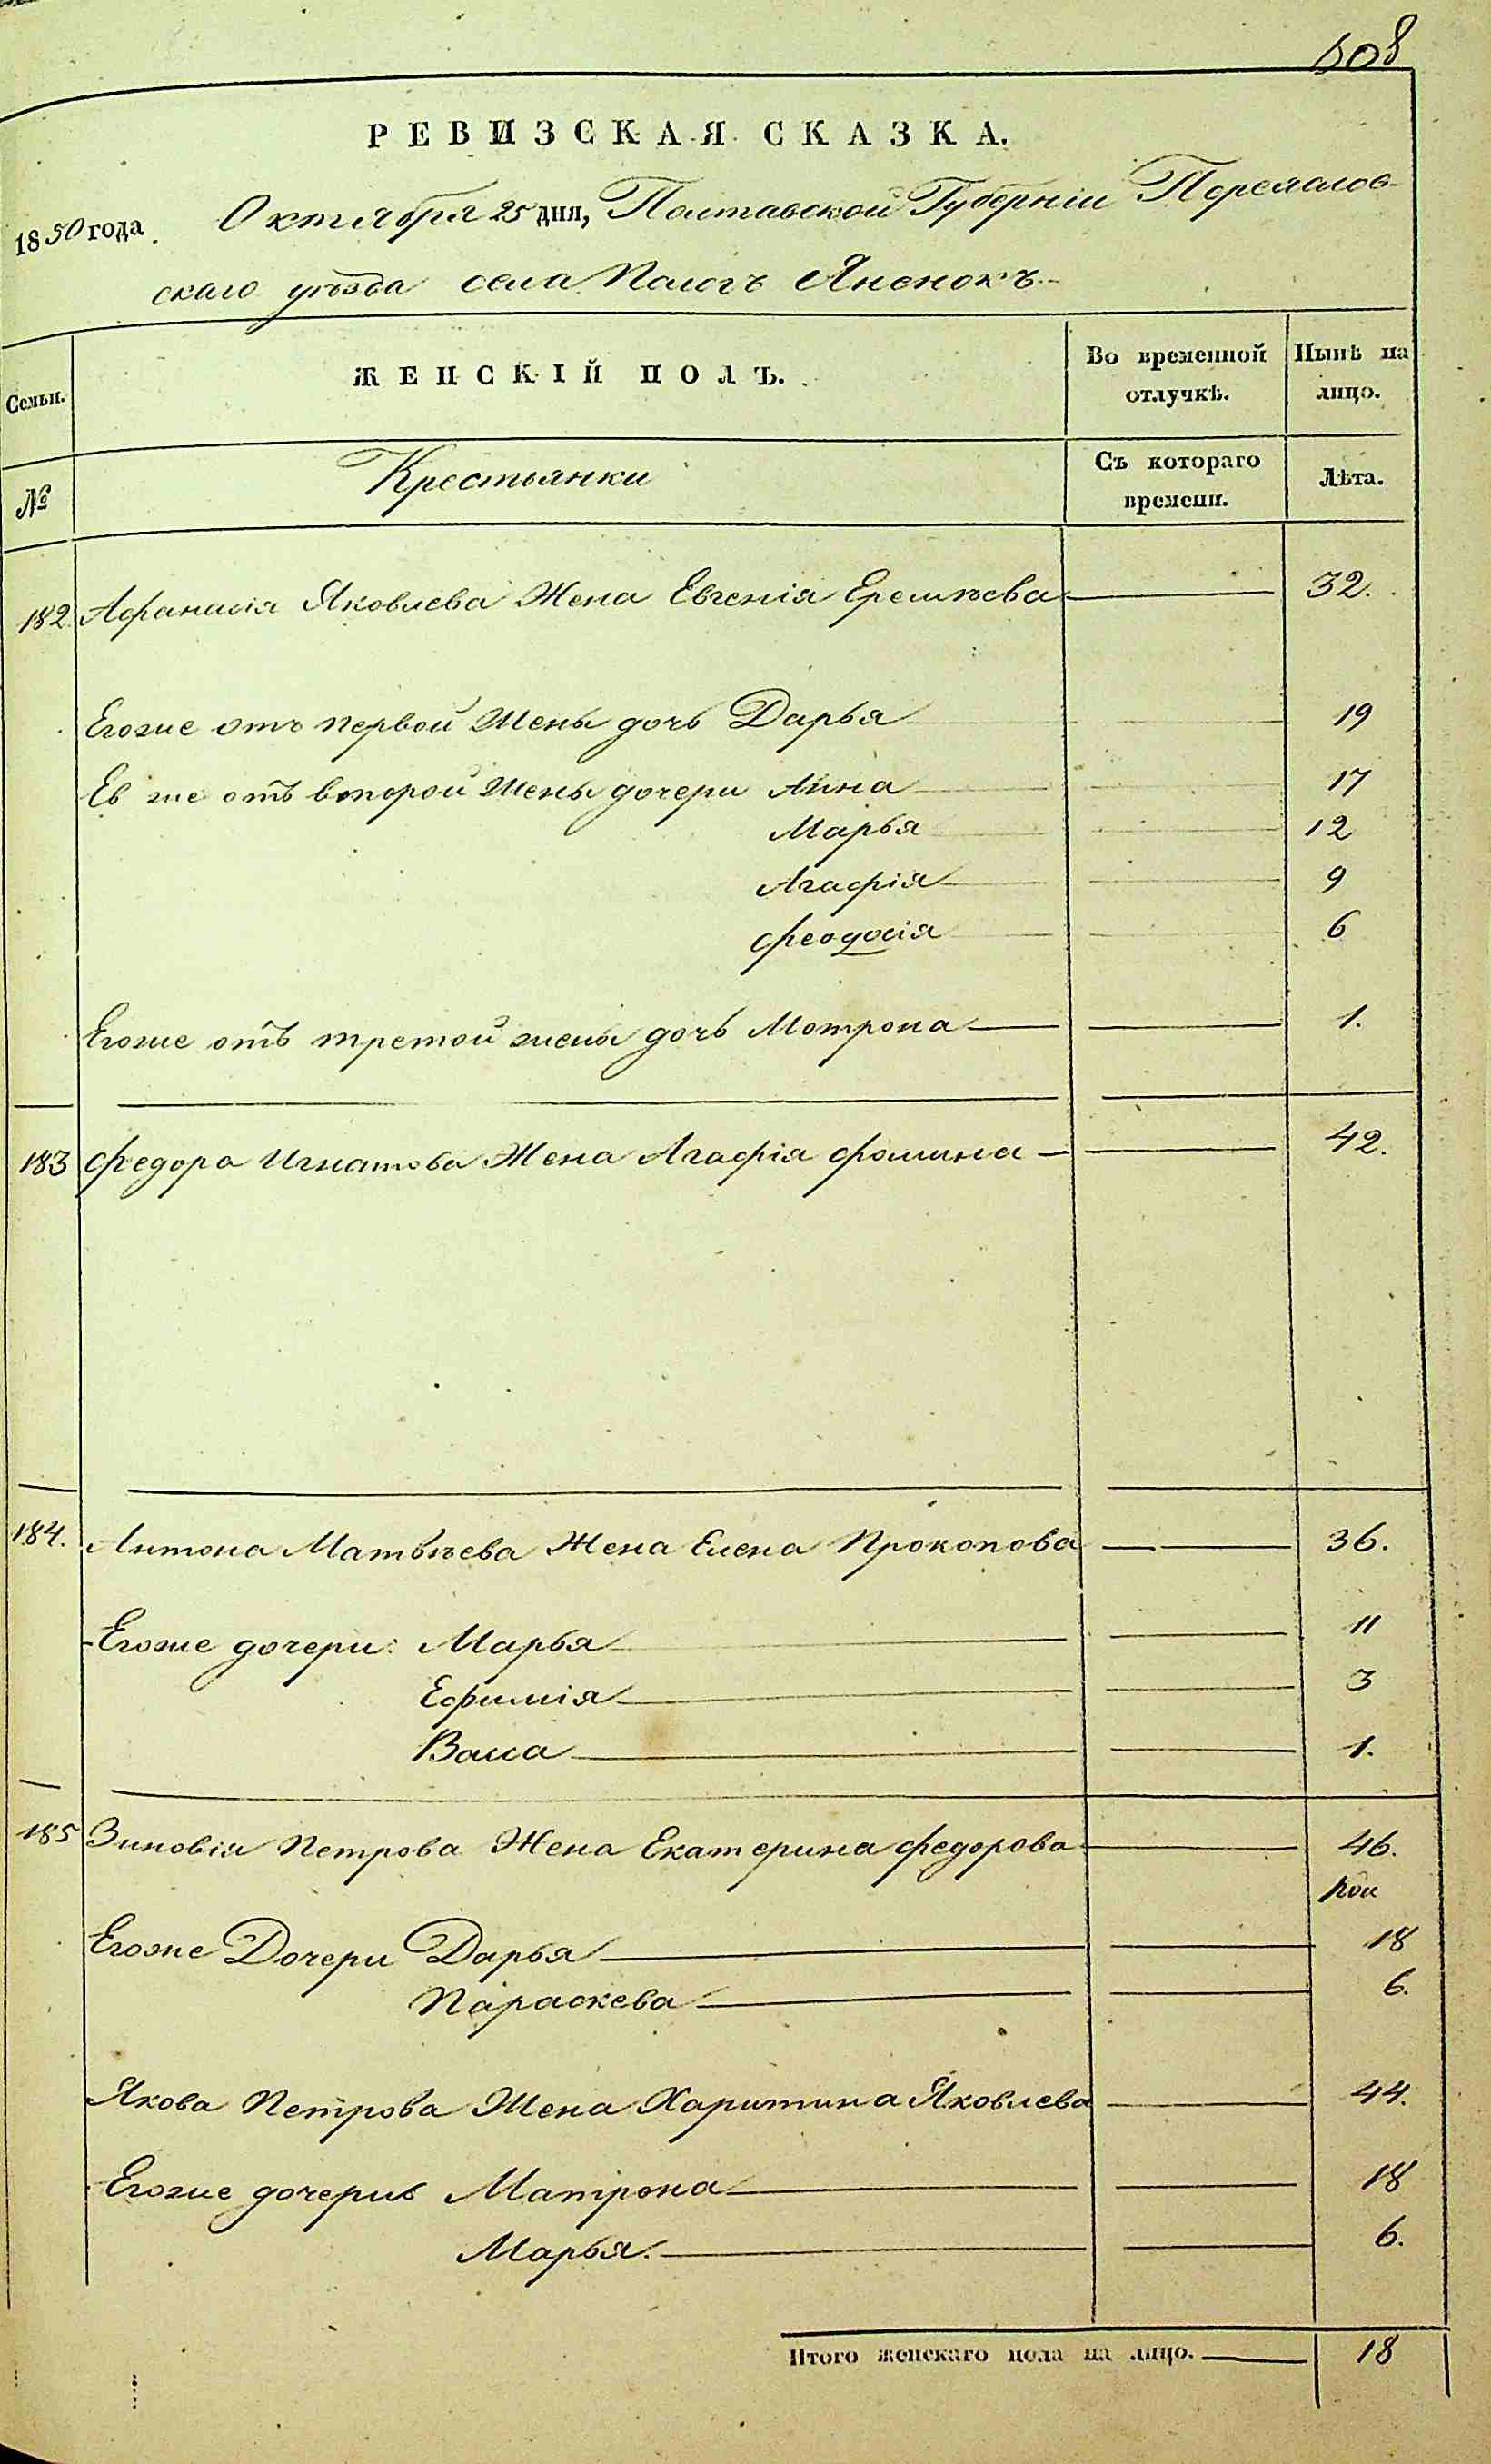 508
РЕВИЗСКАЯ СКАЗКА.
1850 года Октября 25 дня, Полтавской Губерніи Переяслов-
скаго уѣзда села Пологъ Яненокъ
Семьи.
ЖЕНСКІЙ ПОЛЪ.
Во временной отлучкѣ.
Нынѣ на лицо.
№
Крестьянки
Съ котораго времени.
Лѣта.
182. Афанасія Яковлева Жена Евгенія Еремѣева 32.
Егоже отъ первой Жены дочь Дарья 19
Ев же отъ второй Жены дочери Анна 17
Марья 12
Агафія 9
Феодосія 6
Егоже отъ третой жены дочь Мотрона 1.
183 Федора Игнатова Жена Агафія Фомина 42.
184. Антона Матвѣева Жена Елена Прокопова 36.
Егоже дочери: Марья 11
Ефимія 3
Васса 1.
185 Зиновія Петрова Жена Екатерина Федорова 46.
Егоже Дочери Дарья 18
Параскева 6.
Якова Петрова Жена Харитина Яковлева 44.
Егоже дочерив Матрона 18
Марья. 6.
Итого женскаго пола на лицо. 18